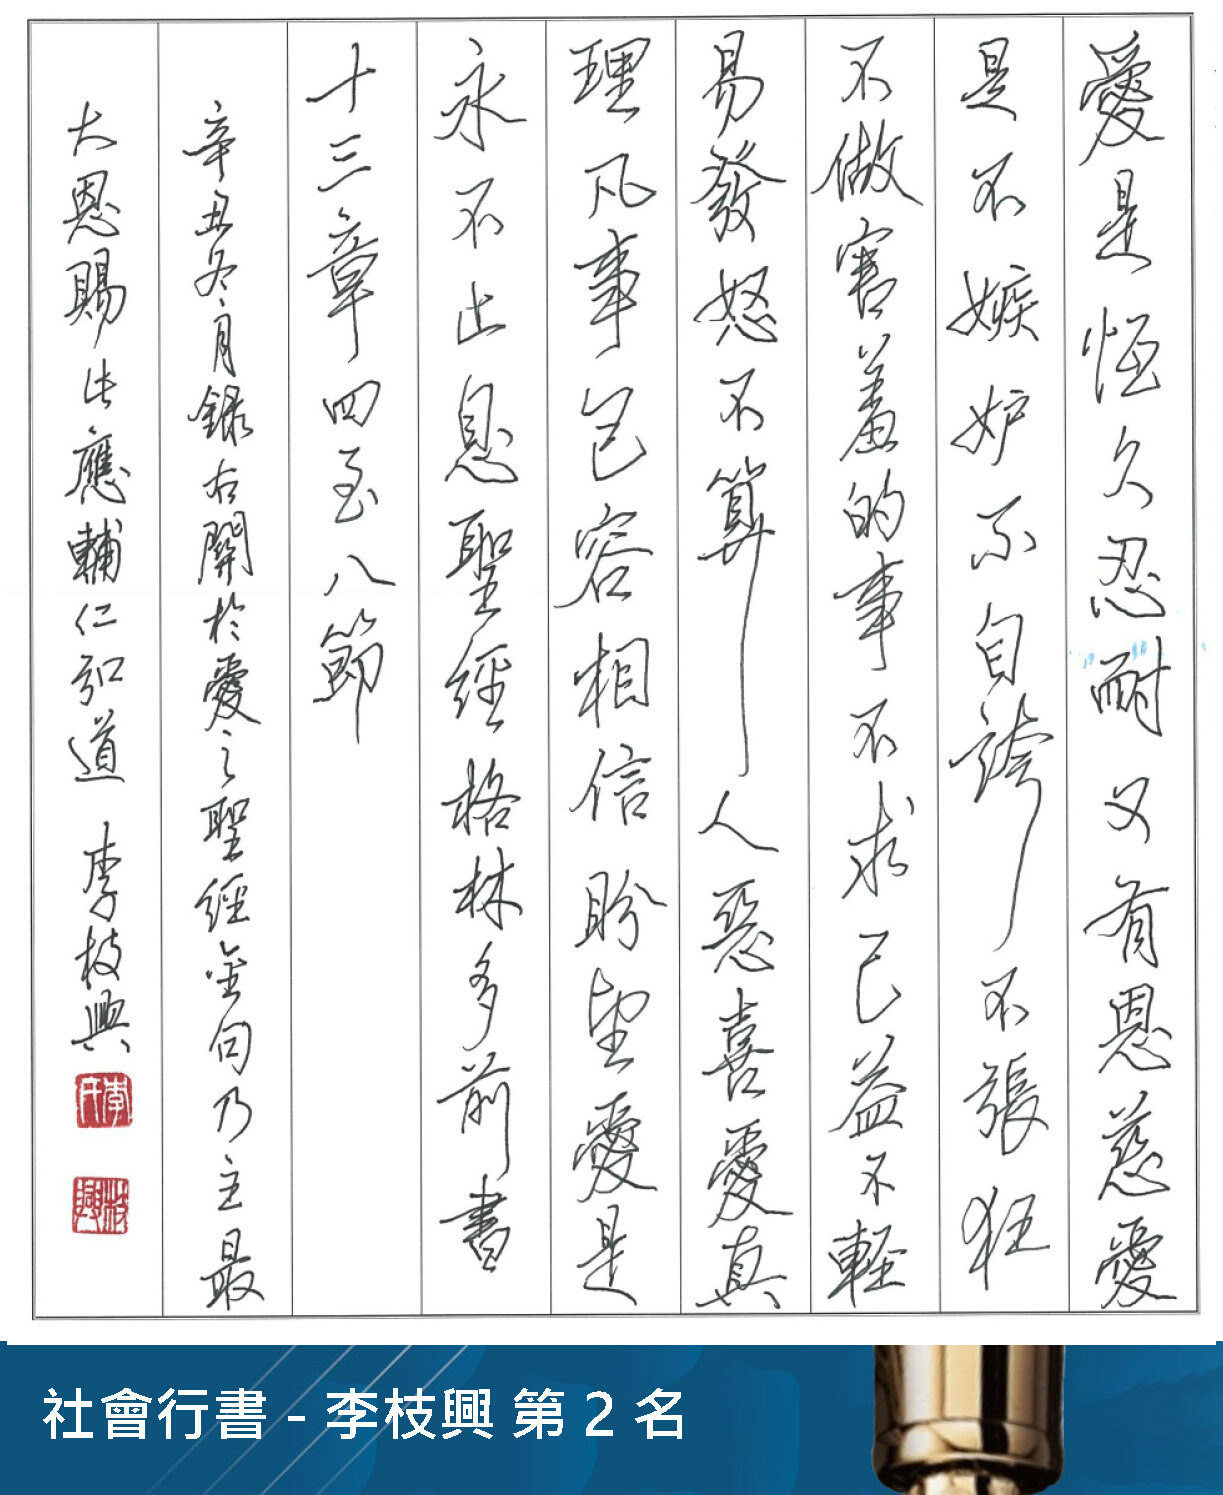 愛是恆久忍耐又有恩慈愛
是不嫉妒不自誇不張狂
不做害羞的事不求己益不輕
易發怒不算人惡喜愛真
理凡事包容相信盼望愛是
永不止息聖經格林多前書
十三章四至八節
辛丑冬月錄右關於愛之聖經金句乃主最
大恩賜此應輔仁弘道 李枝興
李氏
枝興
社會行書 - 李枝興 第 2 名